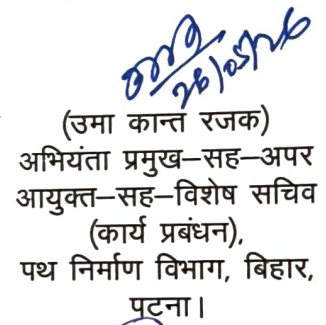 26/05/26
(उमा कान्त रजक)
अभियंता प्रमुख–सह–अपर
आयुक्त–सह–विशेष सचिव
(कार्य प्रबंधन),
पथ निर्माण विभाग, बिहार,
पटना।